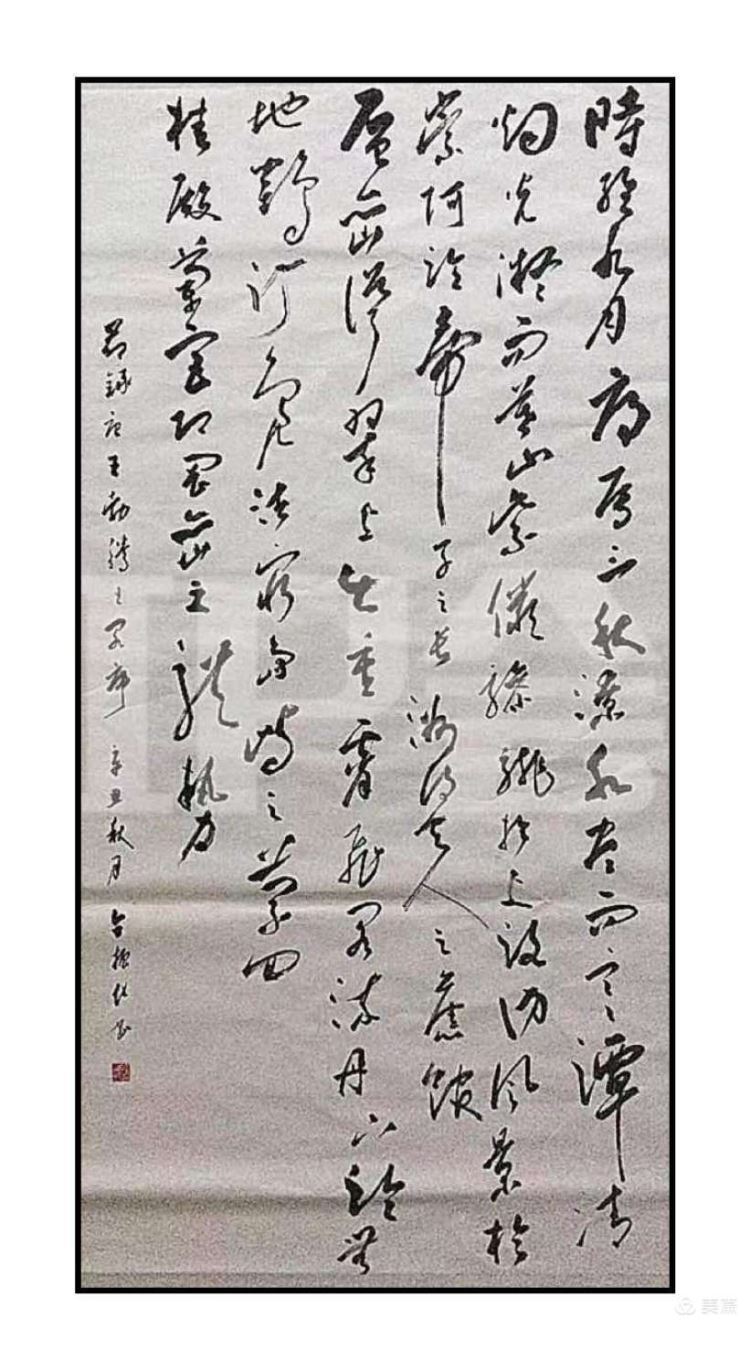 時維九月序屬三秋潦水盡而寒潭清
烟光凝而暮山紫儼驂騑於上路訪風景於
崇阿臨帝子之長洲得天人之舊館
層巒聳翠上出重霄飛閣流丹下臨無
地鶴汀鳧渚窮島嶼之縈回
桂殿蘭宮即岡巒之體勢
節錄唐王勃滕王閣序 辛丑秋月 書
美篇